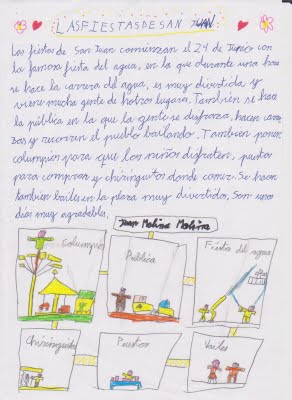 LAS FIESTAS DE SAN JUAN
Las fiestas de San Juan comienzan el 24 de Junio con
la famosa fiesta del agua, en la que durante una hora
se hace la carrera del agua, es muy divertida y
viene mucha gente de hotros lugares. También se hace
la pública en la que la gente se disfraza, hacen carro
zas y recorren el pueblo bailando. También ponen
columpios para que los niños disfruten, puestos
para comprar y chiringuitos donde comer. Se hacen
también bailes en la plaza muy divertidos. Son unos
días muy agradables.
Juan Molina Molina
Columpios
Pública
Fiesta del agua
Chiringuito
Puestos
Vailes